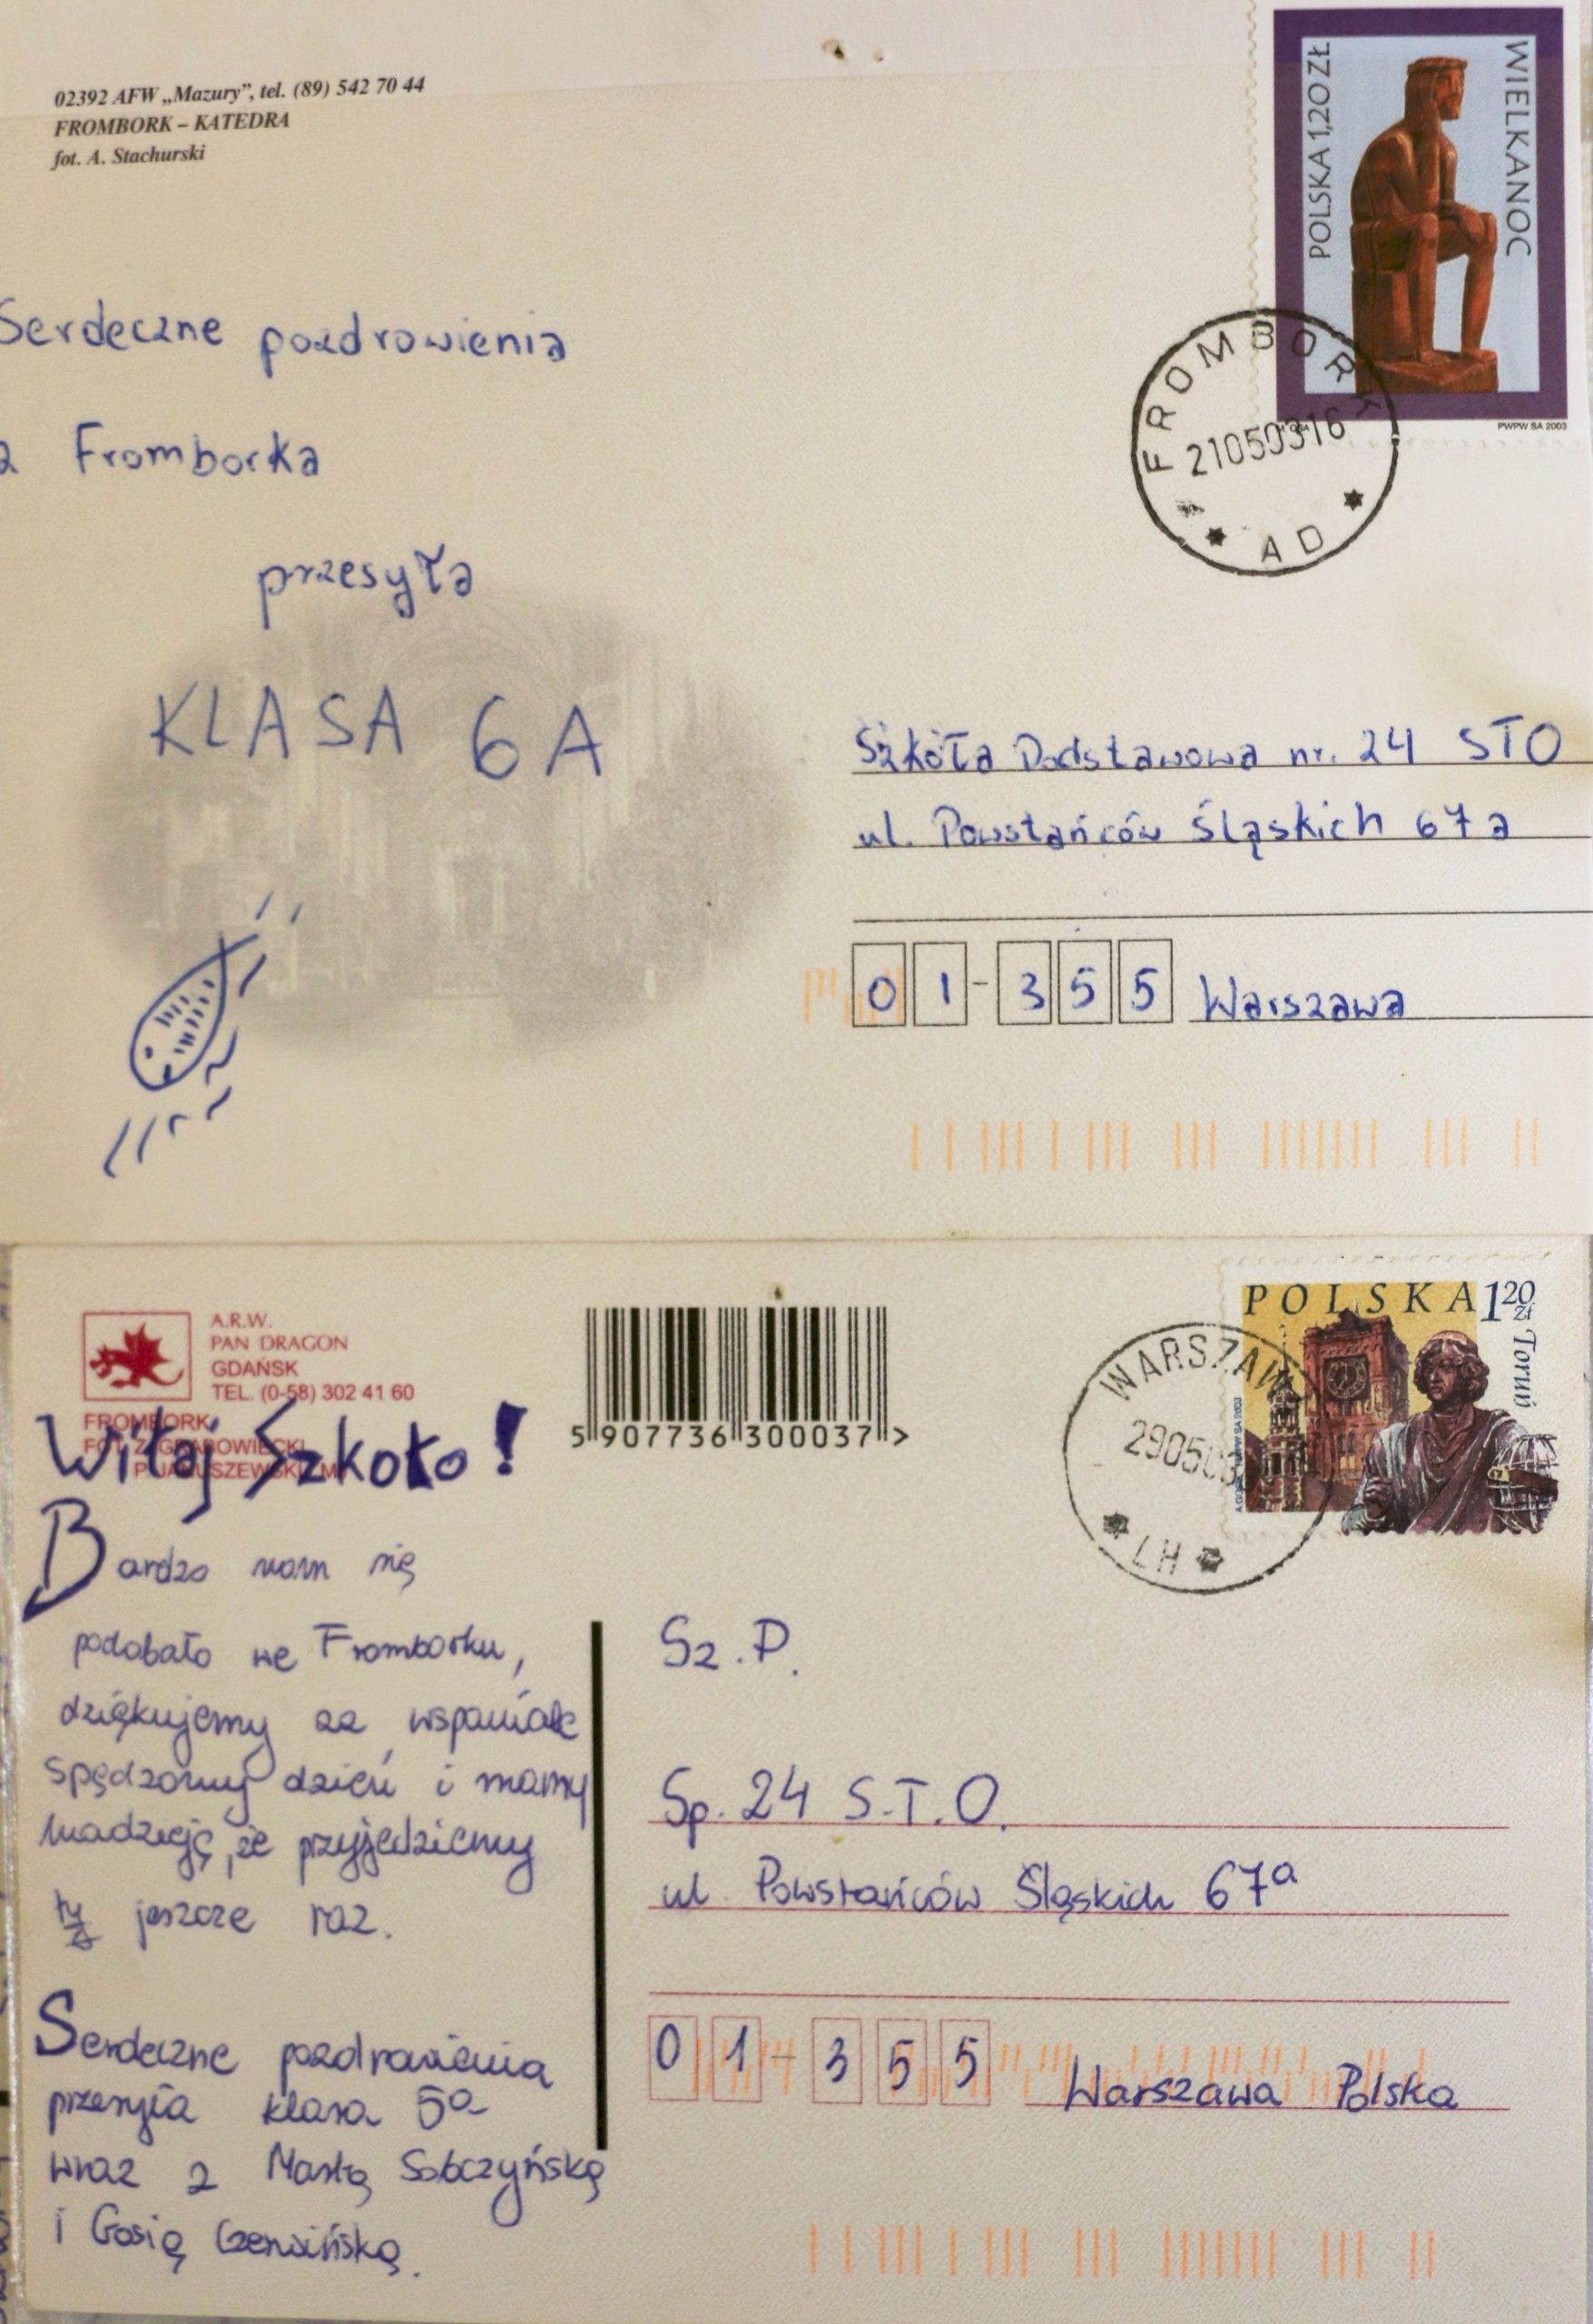 02392 AFW „Mazury”, tel. (89) 542 70 44
FROMBORK – KATEDRA
fot. A. Stachurski
POLSKA 1,20 ZŁ
WIELKANOC
PWPW SA 2003
FROMBORK
21050316
AD
Serdeczne pozdrowienia
z Fromborka
przesyła
KLASA 6A
Szkoła Podstawowa nr. 24 STO
ul. Powstańców Śląskich 67a
01-355 Warszawa
A.R.W.
PAN DRAGON
GDAŃSK
TEL. (0-58) 302 41 60
FROMBORK
FOT. Z. GRABOWIECKI
5 907736 300037 >
POLSKA 1 20 zł
Toruń
WARSZAW
29050
LH
Witaj Szkoło!
Bardzo nam się
podobało we Fromborku,
dziękujemy za wspaniale
spędzony dzień i mamy
nadzieję, że przyjedziemy
tu jeszcze raz.
Serdeczne pozdrowienia
przesyła klasa 5a
wraz z Martą Sobczyńską
i Gosią Czerwińską.
Sz. P.
Sp. 24 S.T.O.
ul. Powstańców Śląskich 67a
01-355 Warszawa Polska